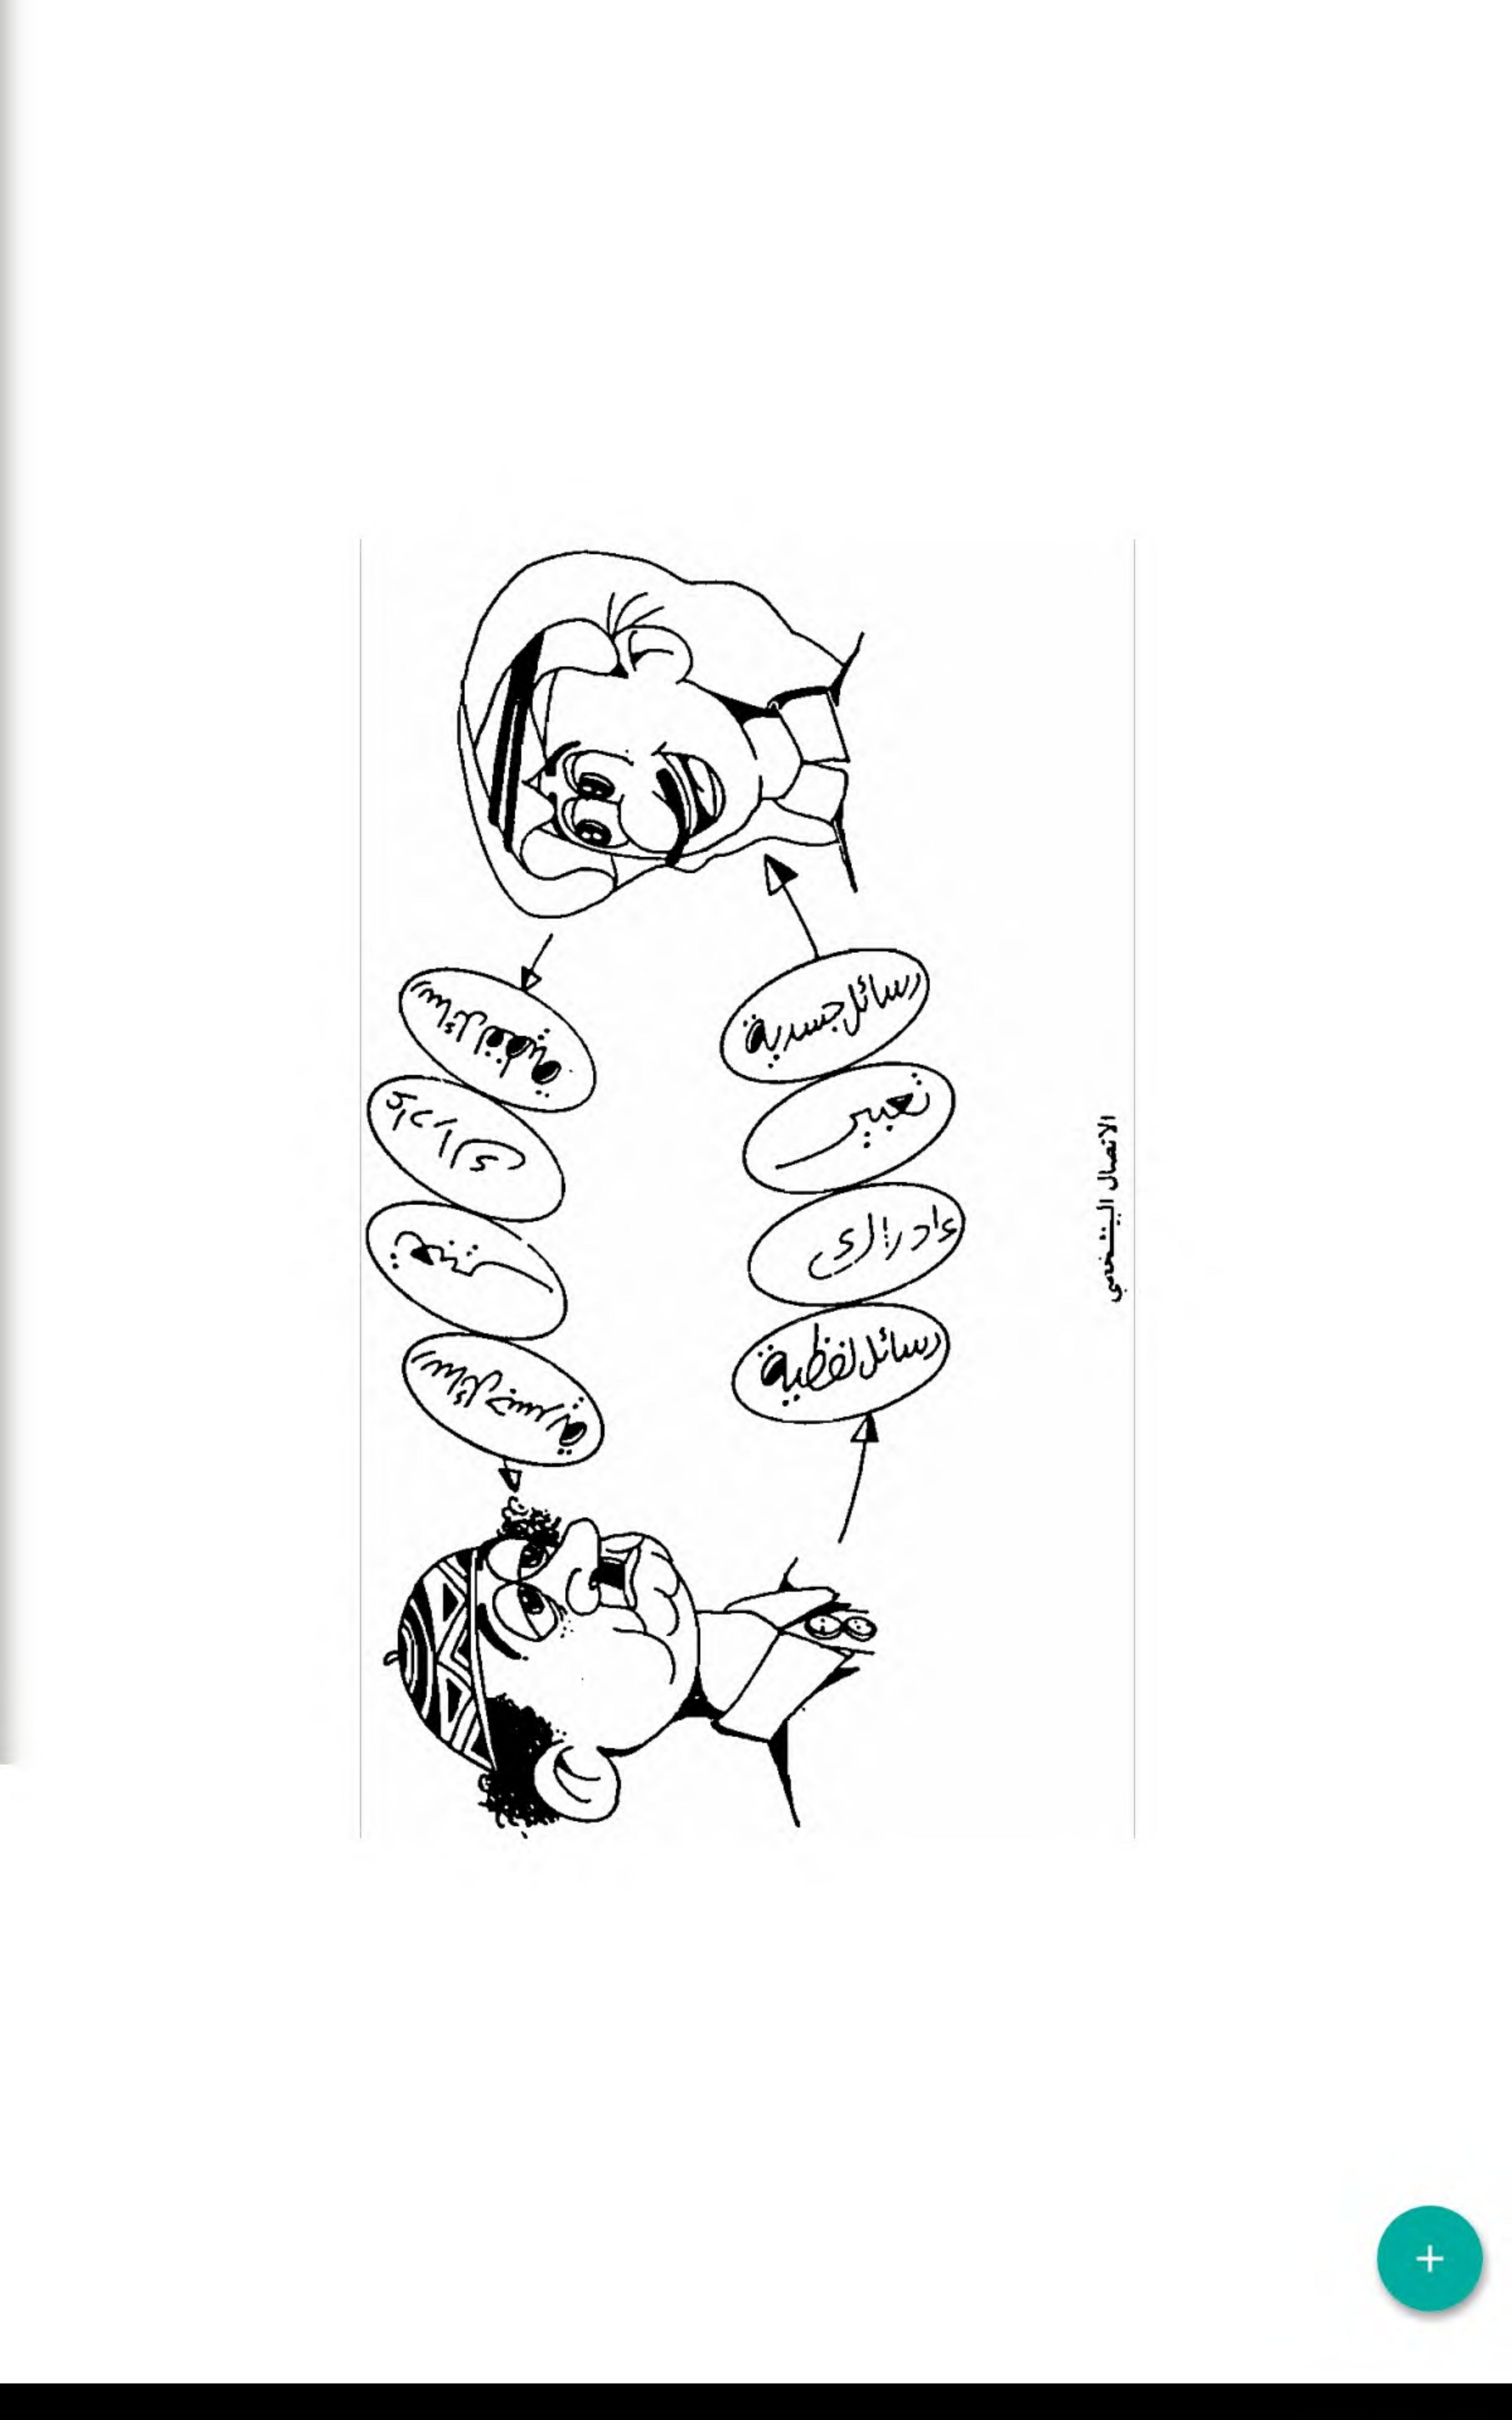 رسائل لفظية
إدراك
تعبير
رسائل جسدية
رسائل جسدية
تعبير
إدراك
رسائل لفظية
الاتصال البيشخصي